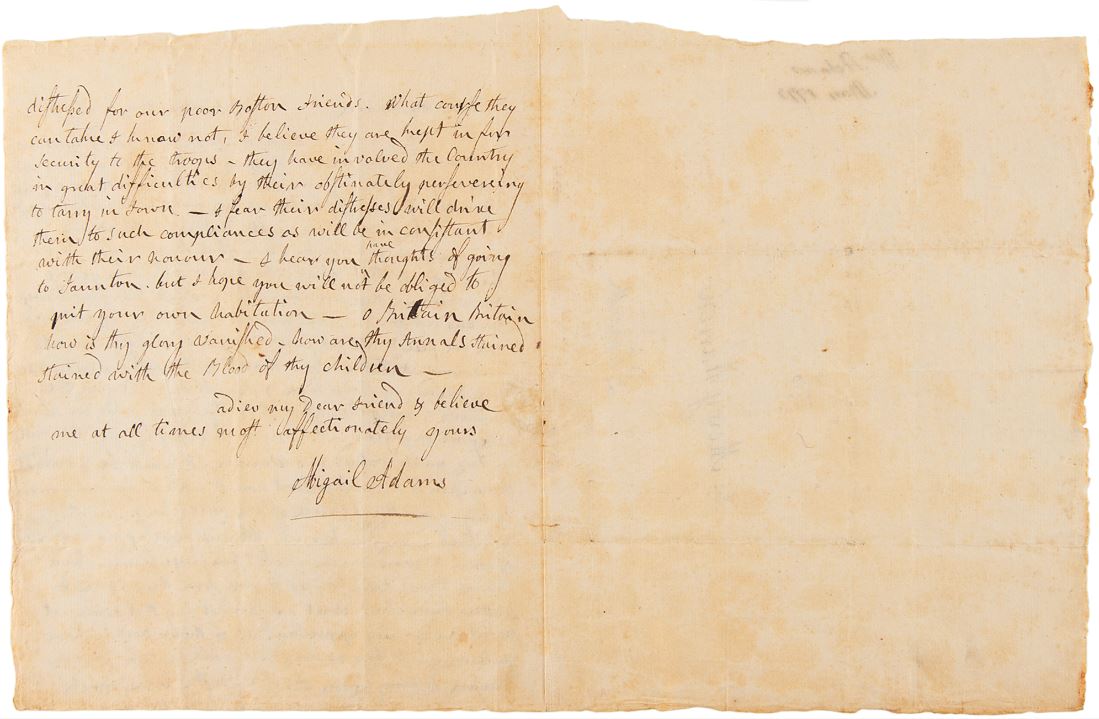 distressed for our poor Boston Friends. What course they
can take I know not, I believe they are kept in for
security to the troops – they have involved the Country
in great difficulties by their obstinately persevering
to tarry in Town. – I fear their distresses will drive
them to such compliances as will be inconsistant
with their honour – I hear you have thoughts of going
to Taunton. but I hope you will not be obliged to
quit your own habitation – o Britain Britain
how is thy glory vanished – how are thy Annals stained
stained with the Blood of thy children –
adieu my Dear Friend & believe
me at all times most affectionately yours
Abigail Adams